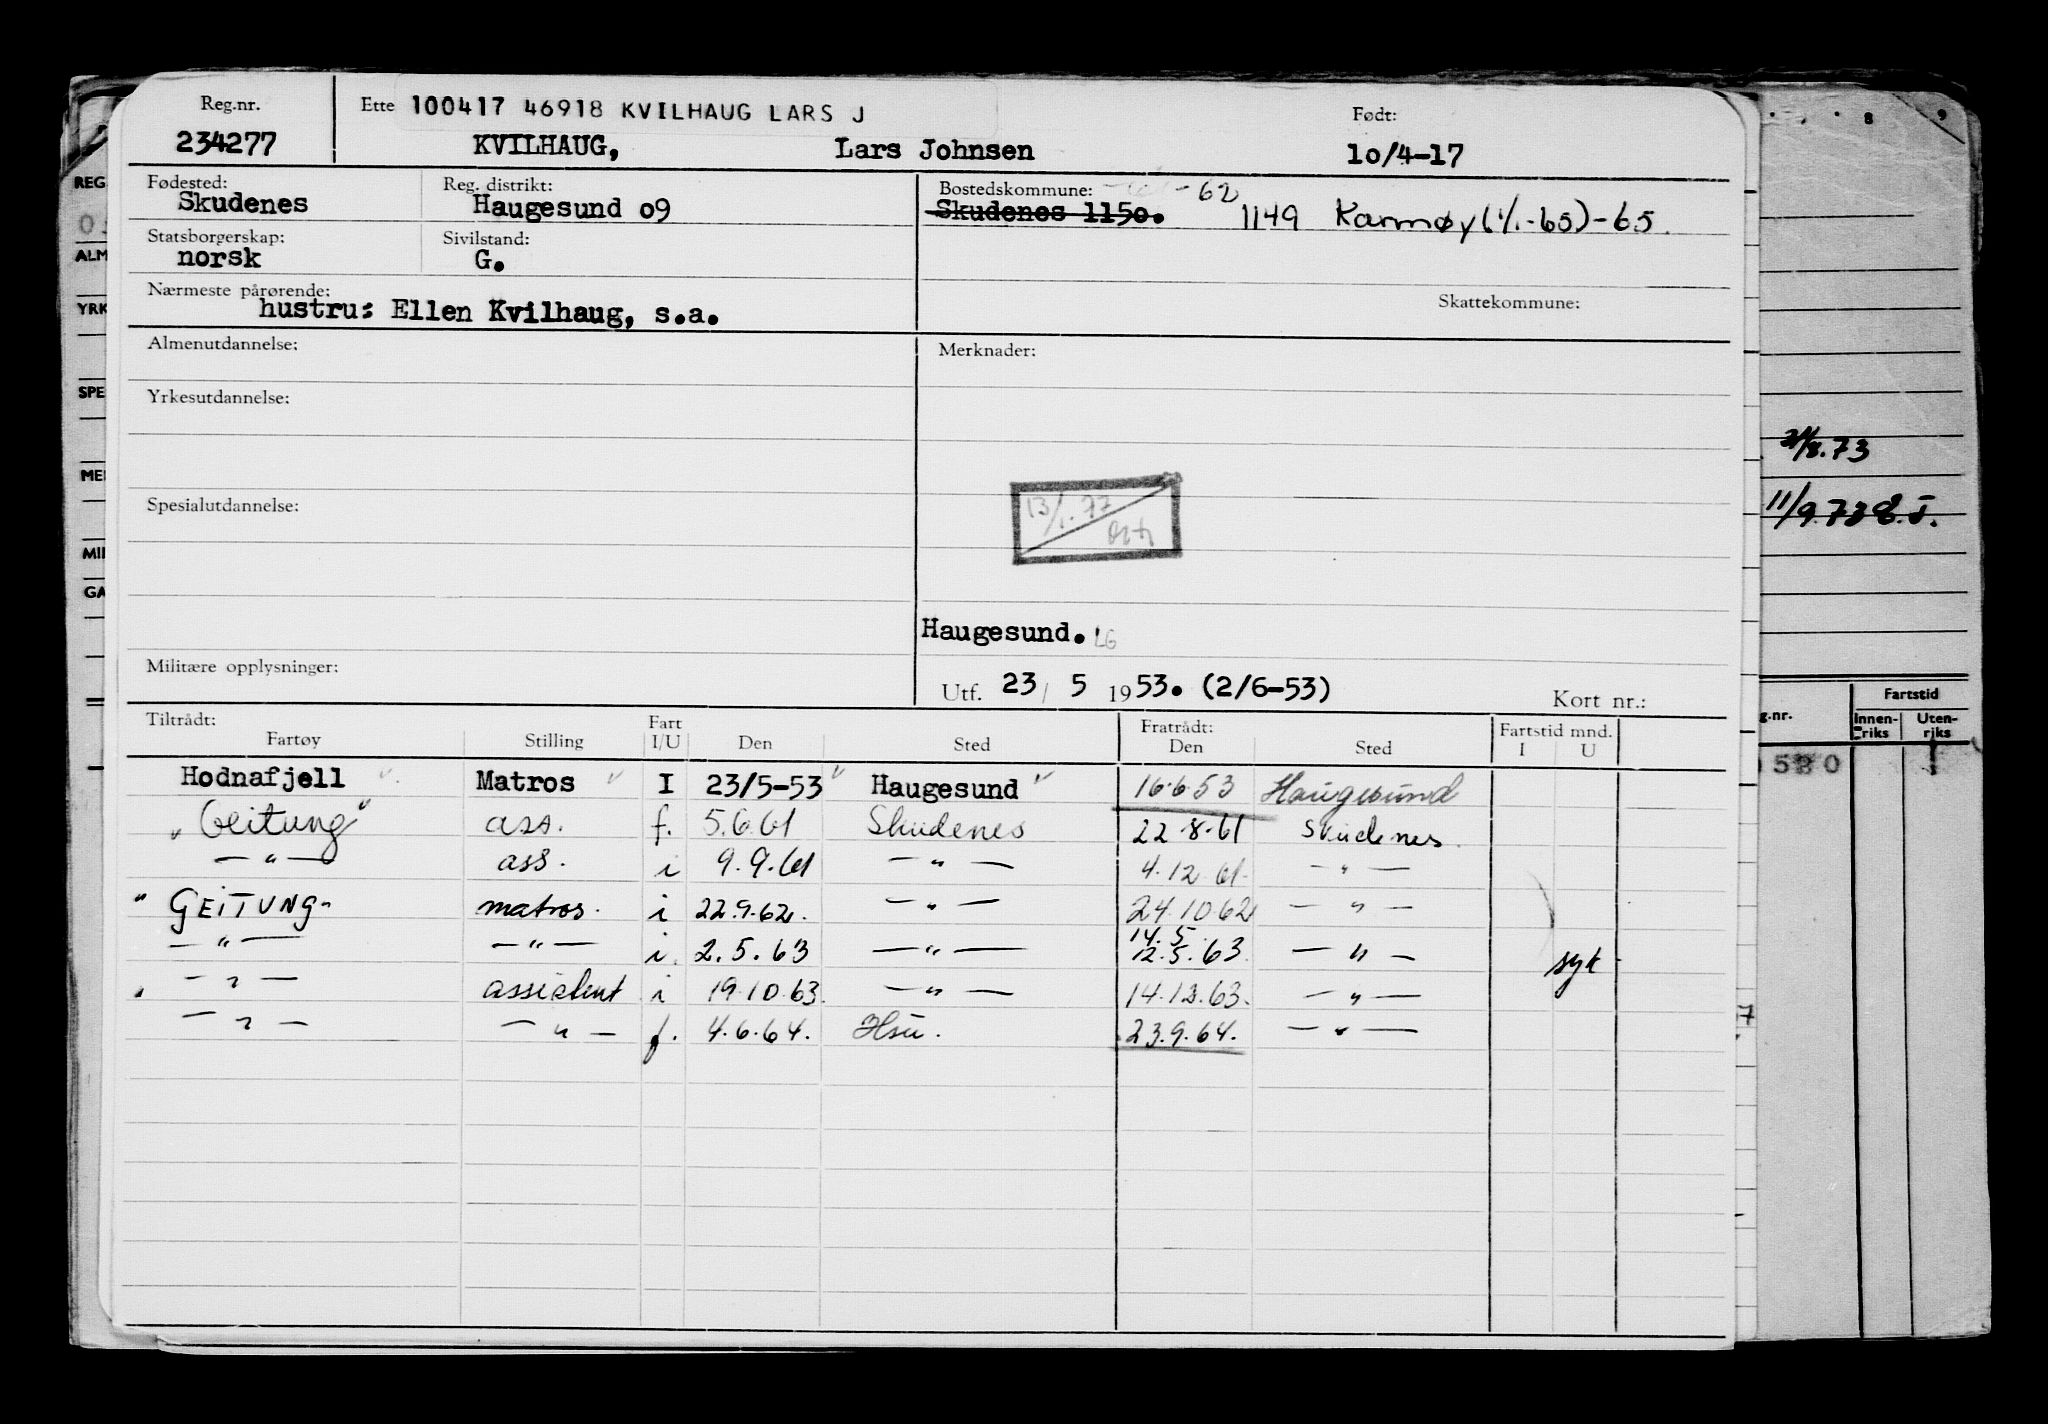 Reg.nr. Ette 100417 46918 KVILHAUG LARS J Født:
234277 KVILHAUG, Lars Johnsen 10/4-17
Fødested: Reg. distrikt: Bostedskommune: -62
Skudenes Haugesund 09 Skudenes 1150. 1149 Karmøy (1/1-65)-65.
Statsborgerskap: Sivilstand:
norsk G.
Nærmeste pårørende: Skattekommune:
hustru: Ellen Kvilhaug, s.a.
Almenutdannelse: Merknader:
Yrkesutdannelse:
Spesialutdannelse: 13/1.77
Haugesund. LG
Militære opplysninger:
Utf. 23/ 5 1953. (2/6-53) Kort nr.:
Tiltrådt: Fart Fratrådt: Fartstid mnd.
Fartøy Stilling I/U Den Sted Den Sted I U
Hodnafjell Matros I 23/5-53 Haugesund 16.6.53 Haugesund
" Geitung" ass. f. 5.6.61 Skudenes 22.8.61 Skudenes.
— " — ass. i 9.9.61 — " — 4.12.61. — " —
" GEITUNG" matros. i 22.9.62. — " — 24.10.62 — " —
14.5.
— " — — " — i. 2.5.63 — " — 12.5.63. — " — syk
— " — assistent i 19.10.63. — " — 14.12.63. — " —
— " — — " — f. 4.6.64. Hsu. 23.9.64. — " —
REG
ALM
YRK
SPE
MIL
GA
8 9
21/8.73
11/9.73
g.nr. Fartstid
Innen-riks Uten-riks
520